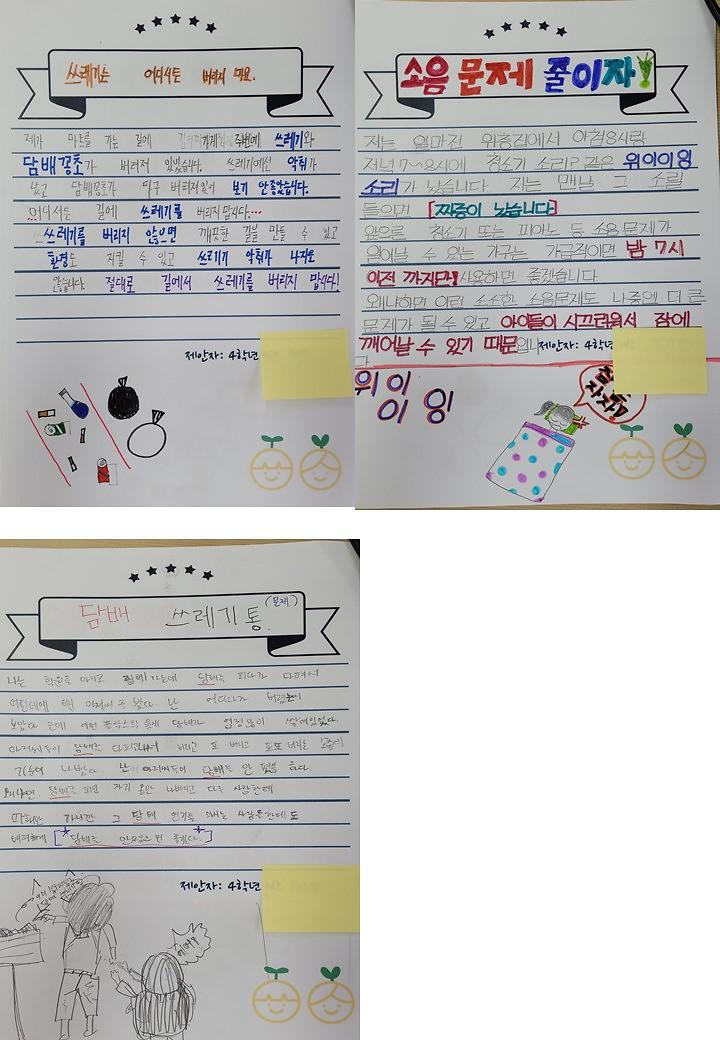 쓰레기는 어디서든 버리지 마요.
제가 마트를 가는 길에 주변에 쓰레기와
담배꽁초가 버려져 있었습니다. 쓰레기에선 악취가
났고 담배꽁초가 마구 버려져있어 보기 안좋았습니다.
어디서든 길에 쓰레기를 버리지 맙시다...
쓰레기를 버리지 않으면 깨끗한 길을 만들 수 있고
환경도 지킬 수 있고 쓰레기 악취가 나지도
않습니다. 절대로 길에서 쓰레기를 버리지 맙시다!
제안자: 4학년
소음 문제 줄이자!
저는 얼마전 위층집에서 아침8시랑
저녁 7~8시에 청소기 소리? 같은 위이이잉
소리가 났습니다 저는 맨날 그 소릴
들으면 [짜증이 났습니다]
앞으로 청소기 또는 피아노 등 소음문제가
일어날 수 있는 가구는 가급적이면 밤 7시
이전 까지만! 사용하면 좋겠습니다
왜냐하면 이런 소소한 소음문제도 나중에 더 큰
문제가 될 수 있고 아이들이 시끄러워서 잠에
깨어날 수 있기 때문입니
다
제안자: 4학년
위이
이잉!
자자!
담배 쓰레기통 (문제)
나는 학원을 마치고 집에 가는데 담배를 피다가 다펴서
어떤 플라스틱 통에 담배가 엄청많이 쌓여있었다.
아저씨들이 담배를 버리고 또 버리고
기분이 나빴다. 난 아저씨들이 담배를 안 폈음 한다.
왜냐하면 담배를 피면 자기 몸만 나빠지고 다른 사람한테
피해만 가니깐 그 담배 연기를 마시는 사람들한테도
[*담배를 안피웠으면 좋겠다.*]
제안자: 4학년